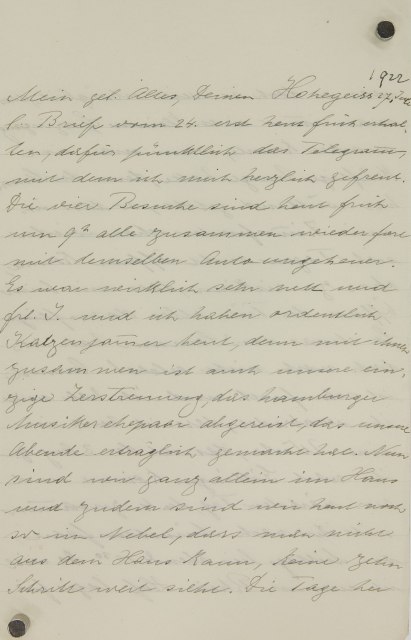 1922
Mein gel. Altes, Deinen Hohegeiss 27. Juli
l. Brief vom 24. erst heut früh erhal-
ten, dafür pünktlich das Telegram,
mit dem ich mich herzlich gefreut.
Die vier Besuche sind heut früh
um 9h alle zusammen wieder fort
mit demselben Autoungeheuer.
Es war wirklich sehr nett und
frl. J. und ich haben ordentlich
Katzenjammer heut, denn mit ihnen
zusammen ist auch unsere ein-
zige Zerstreuung, das hamburger
Musikerehepaar abgereist, das unsere
Abende erträglich gemacht hat. Nun
sind wir ganz allein im Haus
und zudem sind wir heut noch
so im Nebel, dass man nicht
aus dem Haus kann, keine zehn
Schritt weit sieht. Die Tage her